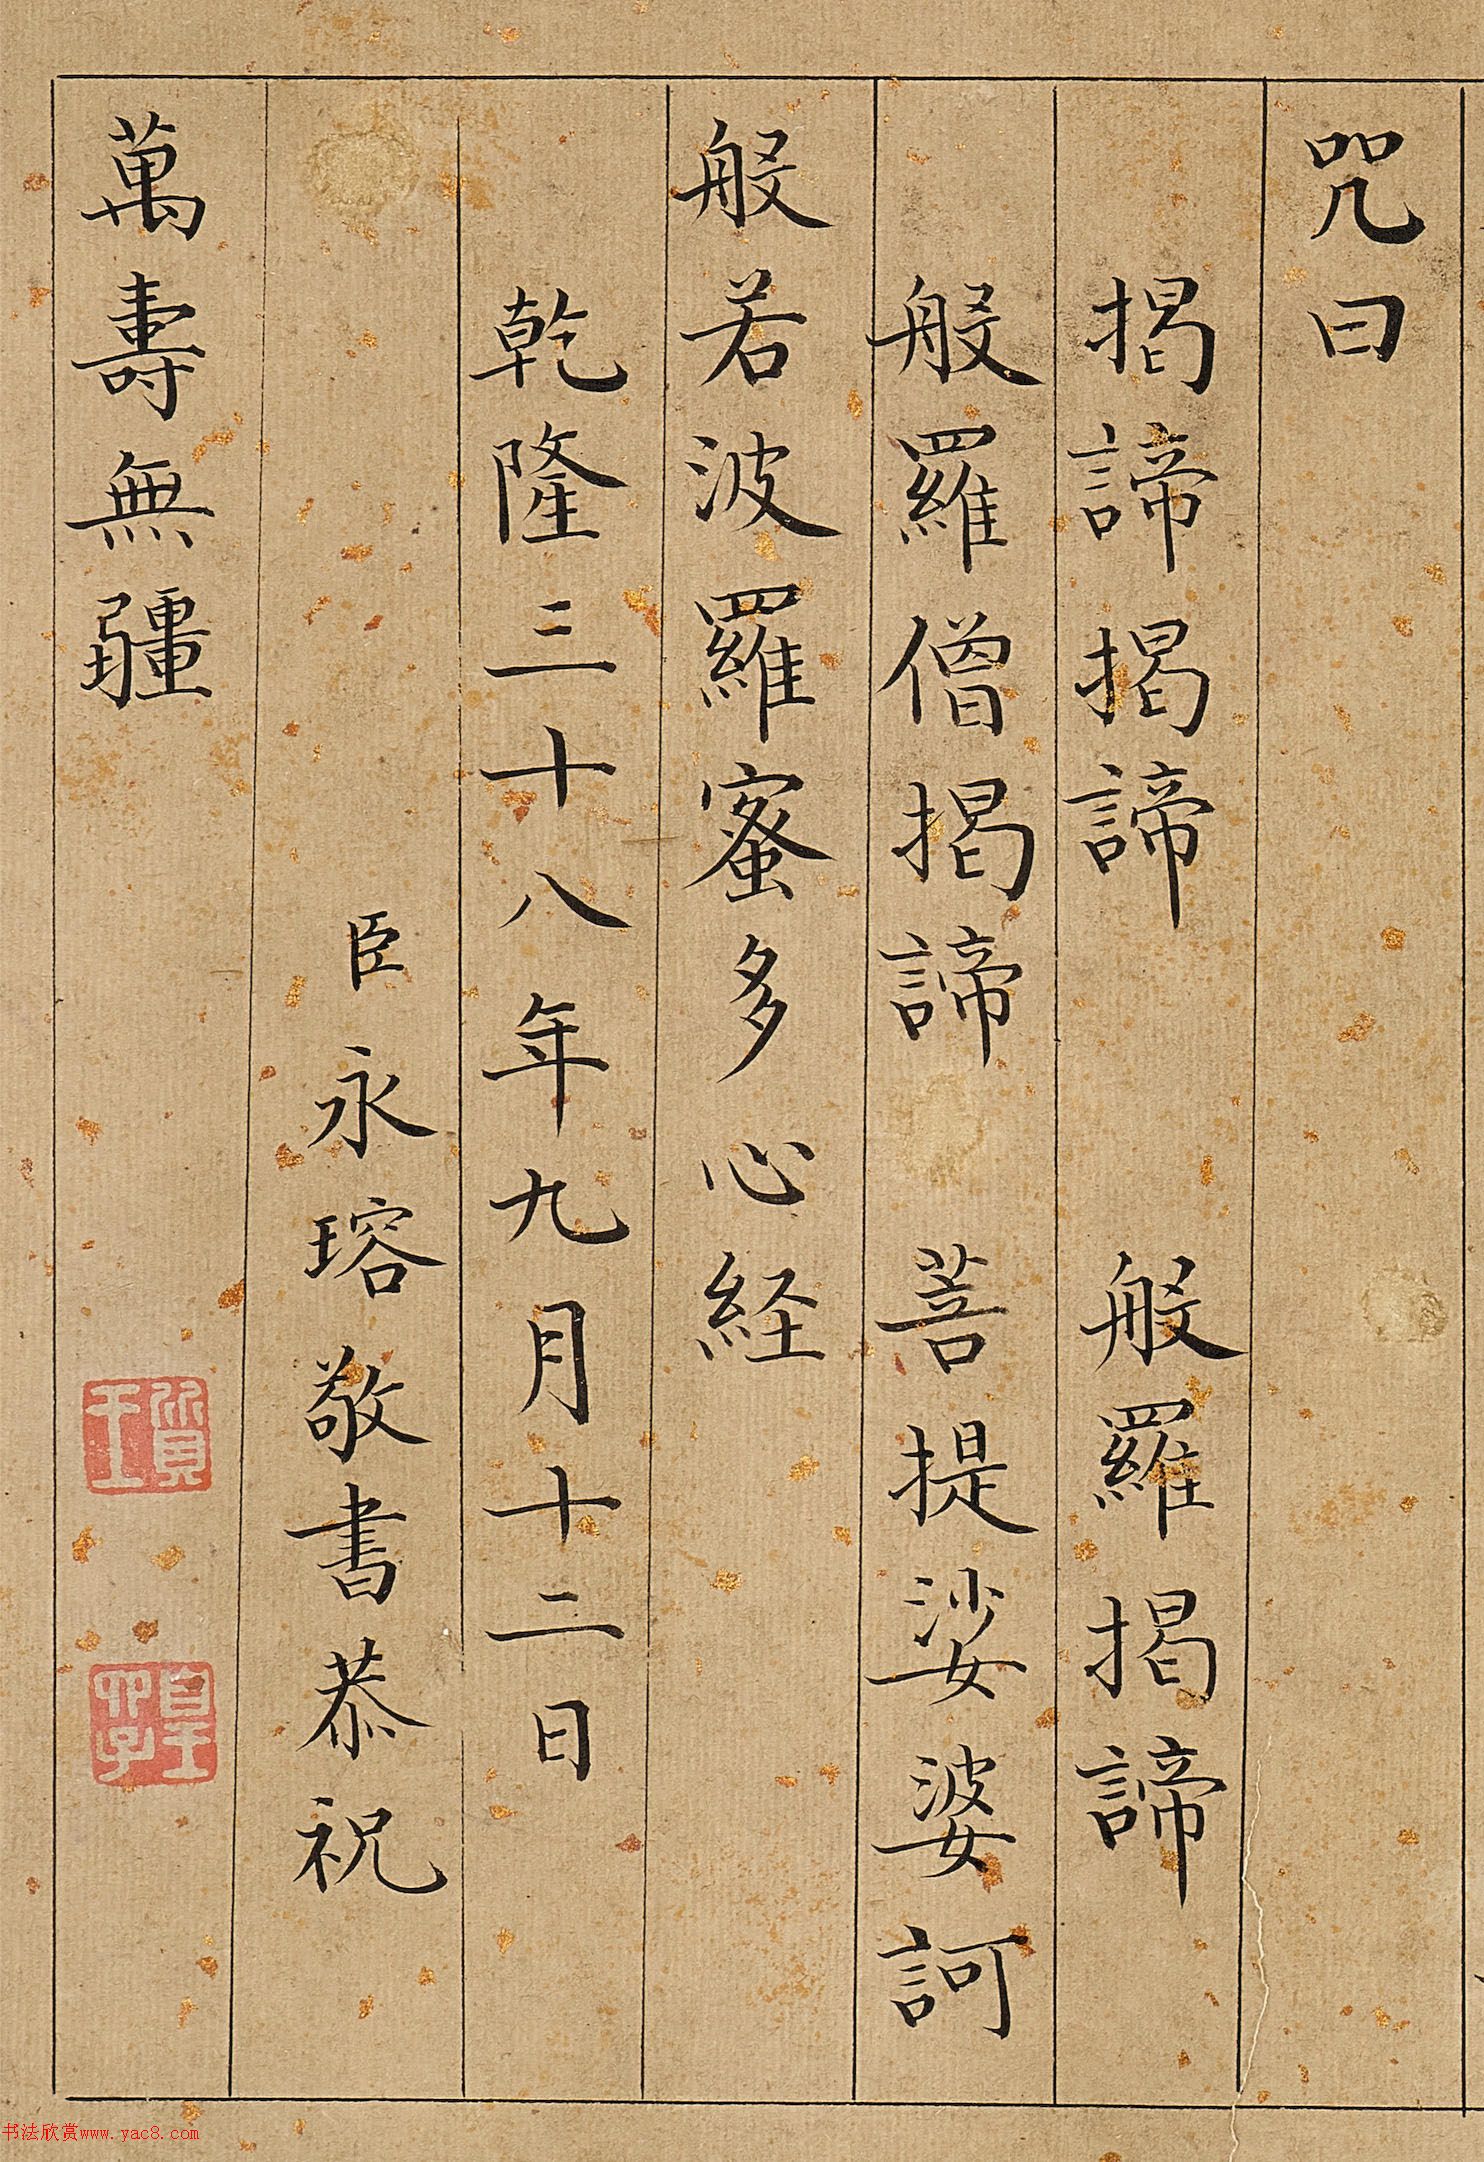 咒曰
揭諦揭諦 般羅揭諦
般羅僧揭諦 菩提娑婆訶
般若波羅蜜多心経
乾隆三十八年九月十二日
臣永瑢敬書恭祝
萬壽無疆
質王
皇六子
书法欣赏www.yac8.com